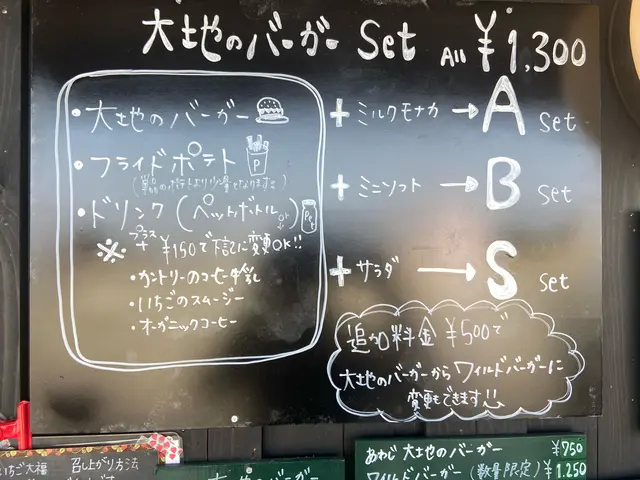 大地のバーガー Set All ¥1,300
・大地のバーガー
・フライドポテト
P
(単品のポテトより少量となります。)
・ドリンク(ペットボトル)
Pet
※ プラス + ¥150で下記に変更OK!!
・カントリーのコーヒー牛乳
・いちごのスムージー
・オーガニックコーヒー
+ ミルクモナカ → A Set
+ ミニソフト → B Set
+ サラダ → S Set
追加料金 ¥500で
大地のバーガーからワイルドバーガーに
変更もできます
いちご大福 召し上がり方法
大地のバーガー
あわじ 大地のバーガー ¥750
ワイルドバーガー (数量限定) ¥1,250